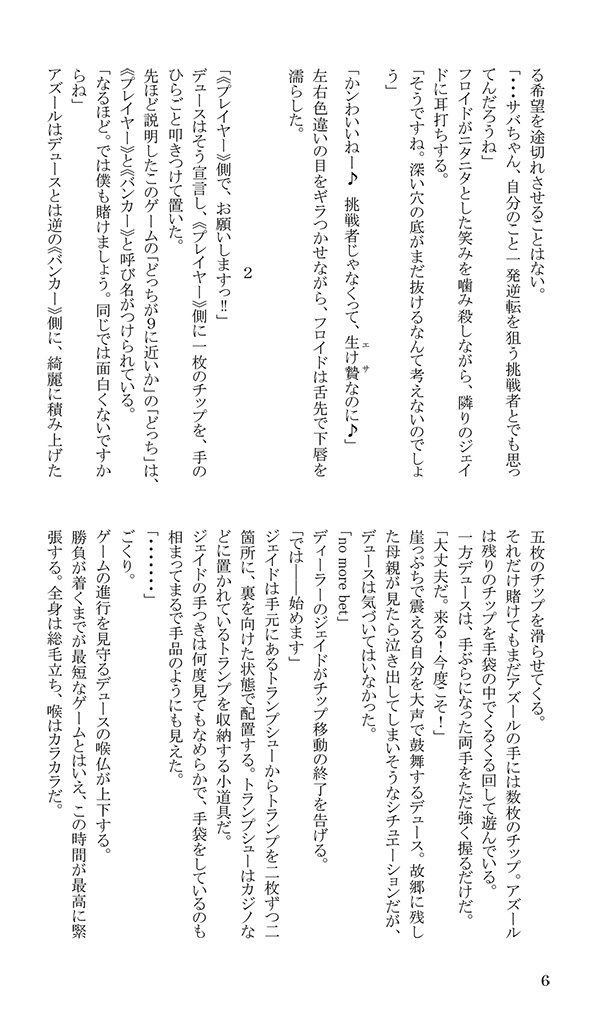 る希望を途切れさせることはない。
「・・・サバちゃん、自分のこと一発逆転を狙う挑戦者とでも思っ
てんだろうね」
フロイドがニタニタとした笑みを噛み殺しながら、隣りのジェイ
ドに耳打ちする。
「そうですね。深い穴の底がまだ抜けるなんて考えないのでしょ
う」
「かンわいいねー♪　挑戦者じゃなくって、生け贄なのに♪」
エサ
左右色違いの目をギラつかせながら、フロイドは舌先で下唇を
濡らした。
2
「《プレイヤー》側で、お願いしますっ!!」
デュースはそう宣言し、《プレイヤー》側に一枚のチップを、手の
ひらごと叩きつけて置いた。
先ほど説明したこのゲームの「どっちが９に近いか」の「どっち」は、
《プレイヤー》と《バンカー》と呼び名がつけられている。
「なるほど。では僕も賭けましょう。同じでは面白くないですか
らね」
アズールはデュースとは逆の《バンカー》側に、綺麗に積み上げた
五枚のチップを滑らせてくる。
それだけ賭けてもまだアズールの手には数枚のチップ。アズール
は残りのチップを手袋の中でくるくる回して遊んでいる。
一方デュースは、手ぶらになった両手をただ強く握るだけだ。
「大丈夫だ。来る！今度こそ！」
崖っぷちで震える自分を大声で鼓舞するデュース。故郷に残し
た母親が見たら泣き出してしまいそうなシチュエーションだが、
デュースは気づいてはいなかった。
「no more bet」
ディーラーのジェイドがチップ移動の終了を告げる。
「では――始めます」
ジェイドは手元にあるトランプシューからトランプを二枚ずつ二
箇所に、裏を向けた状態で配置する。トランプシューはカジノな
どに置かれているトランプを収納する小道具だ。
ジェイドの手つきは何度見てもなめらかで、手袋をしているのも
相まってまるで手品のようにも見えた。
「・・・・・・・」
ごくり。
ゲームの進行を見守るデュースの喉仏が上下する。
勝負が着くまでが最短なゲームとはいえ、この時間が最高に緊
張する。全身は総毛立ち、喉はカラカラだ。
6